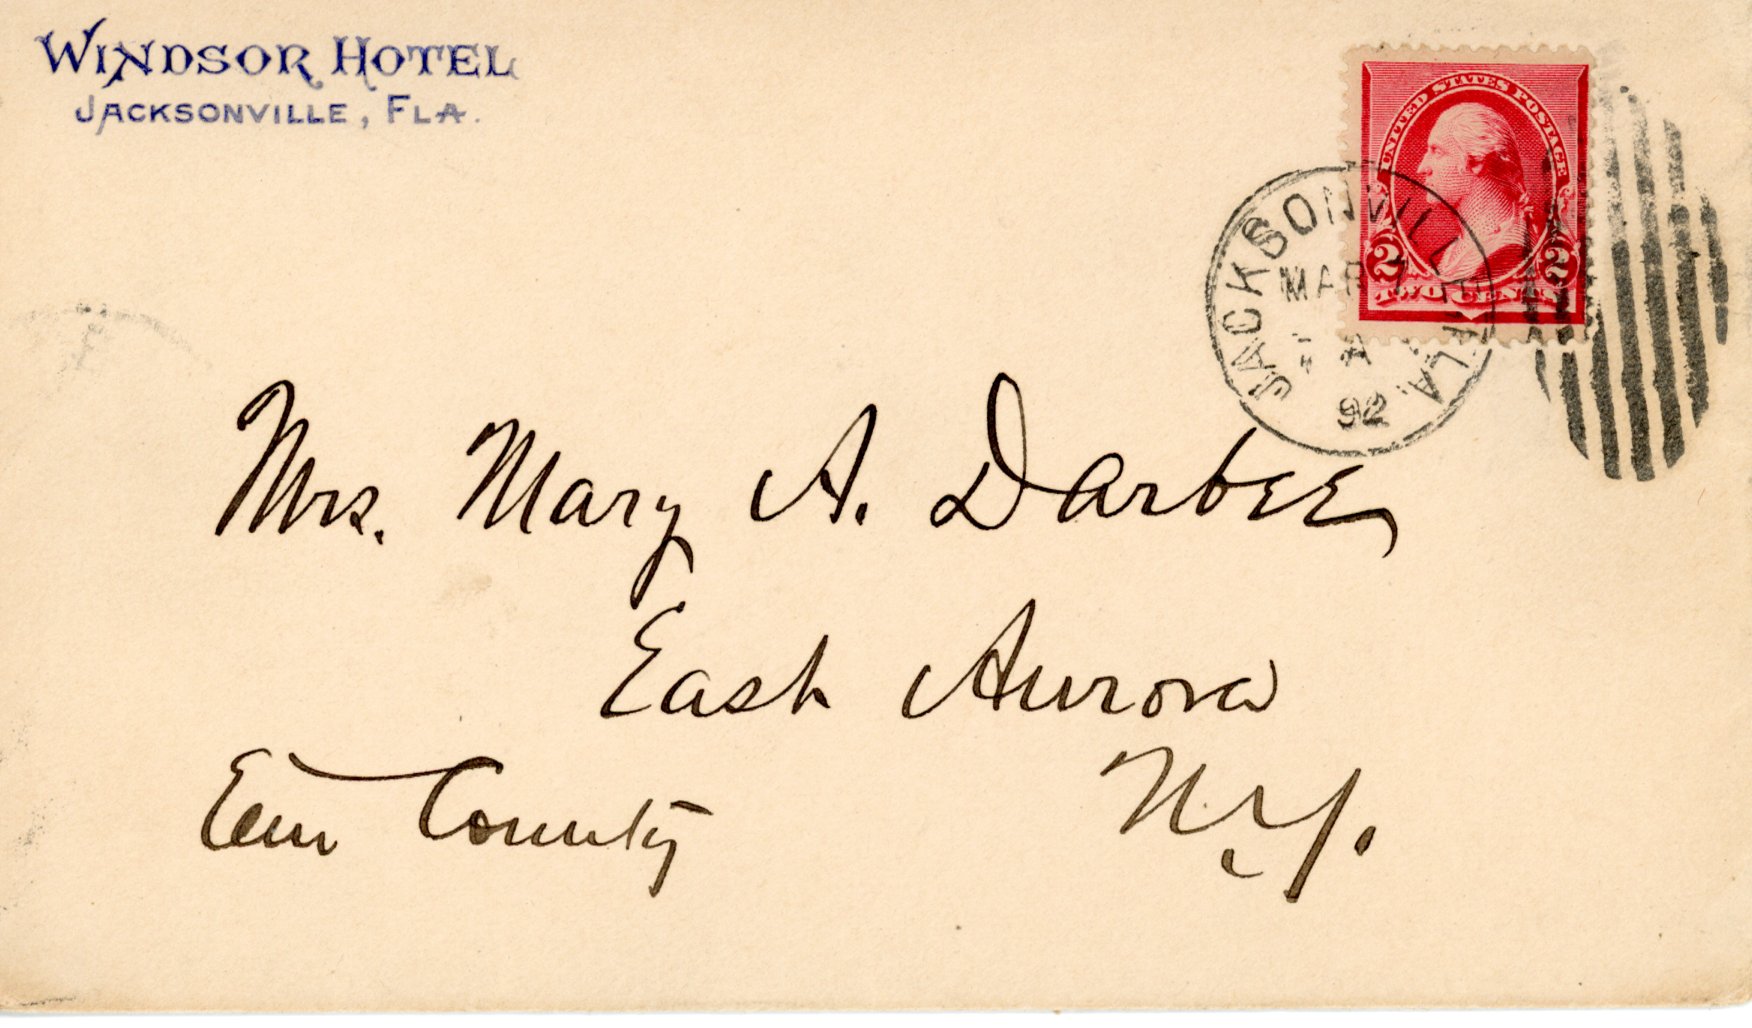 WINDSOR HOTEL
JACKSONVILLE, FLA.
UNITED STATES POSTAGE
2 2
TWO CENTS
JACKSONVILLE FLA.
MAR 7
92
Mrs. Mary A. Darbee
East Aurora
Erie County N.Y.